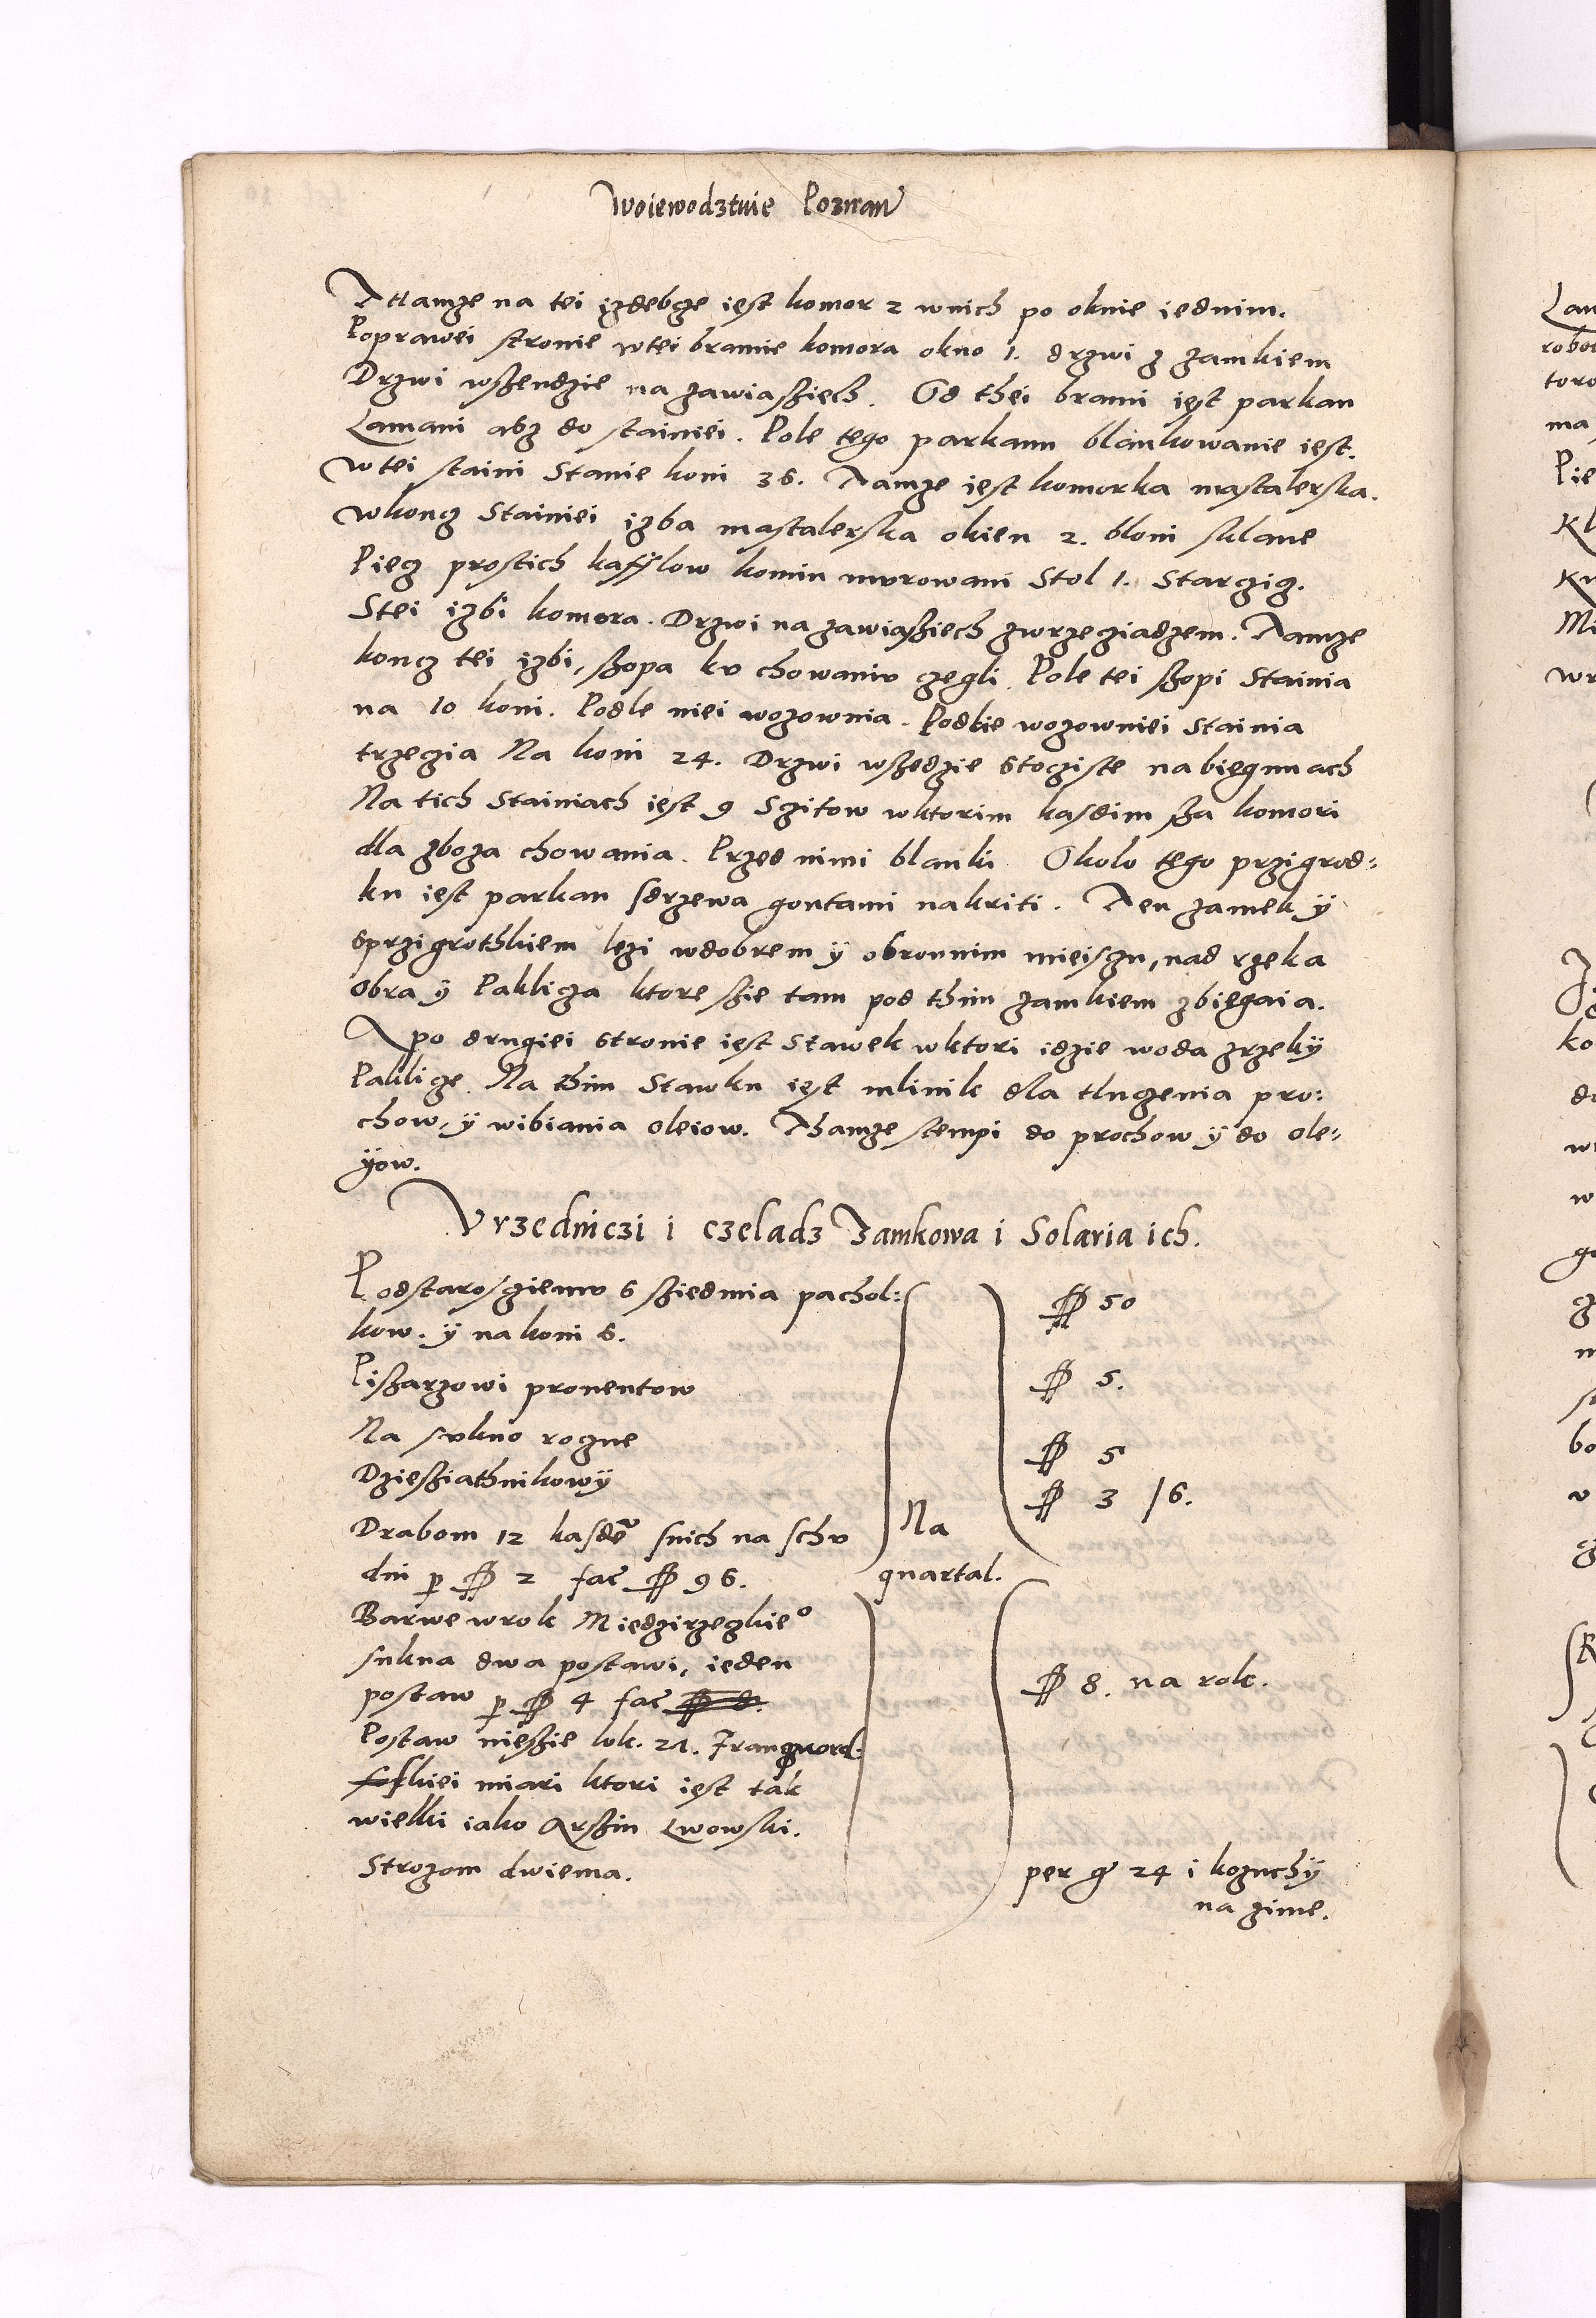 Woiewodztwie Poznan
A tamze na tei izdebcze iest komor 2 wnich po oknie iednim.
Poprawei stronie wtei bramie komora okno 1. drzwi z zamkiem
Drzwi wszendzie na zawiasziech. Od thei brami iest parkan
Lamani abz do stainiei. Pole tego parkanu blankowanie iest.
wtei staini Stanie koni 36. Tamze iest komorka mastalerska.
wkoncz Stainiei izba mastalerska okien 2. bloni sklane
Piecz prostich kafflow komin murowani Stol 1. Starczicz.
Stei izbi komora. Drzwi na zawiasziech zwrzecziadzem. Tamze
koncz tei izbi, szopa kv chowaniv czegli. Pole tei szopi Stainia
na 10 koni. Podle niei wozownia. Podlie wozowniei Stainia
trzeczia Na koni 24. Drzwi wszedzie stocziste nabiegunach
Na tich Stainiach iest 9 Szcitow wktorim kasdim sza komori
dla zboza chowania. Przed nimi blanki Okolo tego przigrod:
ku iest parkan sdrzewa gontami nakriti. Ten zamek ÿ
sprzigrothkiem lezi wdobrem ÿ obronnim mieisczu, nad rzeka
Obra ÿ Paklicza ktore szie tam pod thim zamkiem zbiegaia.
A po drugiei stronie iest Stawek wktori idzie woda zrzekÿ
Paklicze. Na thim Stawku iest mlinik dla tluczenia pro:
chow, ÿ wibiania oleiow. Thamze stempi do prochow ÿ do ole:
ÿow.
Vrzedniczi i czeladz Zamkowa i Solaria ich.
Podstarosciemv s sziedmia pachol:
kow. ÿ na koni 6.
50
Piszarzowi prouentow
5.
Na svkno roczne
5
Dziesziathnikowÿ
3 /6.
Drabom 12 kasdem snich na schv
Na
dni per 2 fac 96.
quartal.
Barwe wrok Miedzirzeczkieo
sukna dwa postawi, ieden
postaw per 4 fac
8. na rok.
Postaw niesie lok. 21. Franquord:
skiei miari ktori iest tak
wielki iako Arszin Lwowski.
Strozom dwiema.
per g 24 i kozuchÿ
na zime.